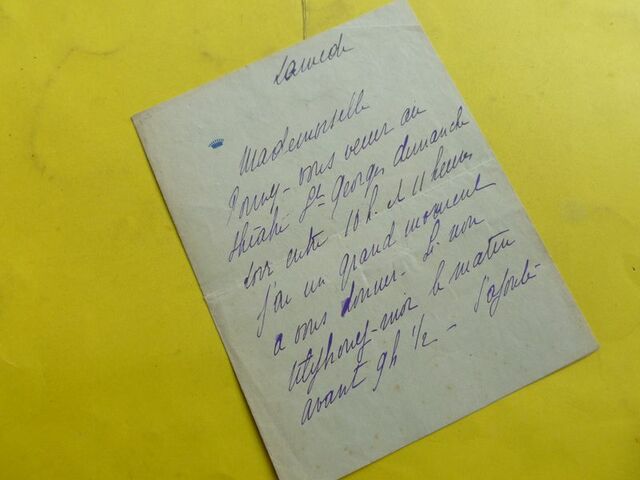 Samedi
Mademoiselle
Pouvez-vous venir au
théatre St Georges dimanche
soir entre 10 h. et 11 heures
J'ai un grand moment
a vous donner. Si non
téléphonez-moi le matin
avant 9h 1/2 -